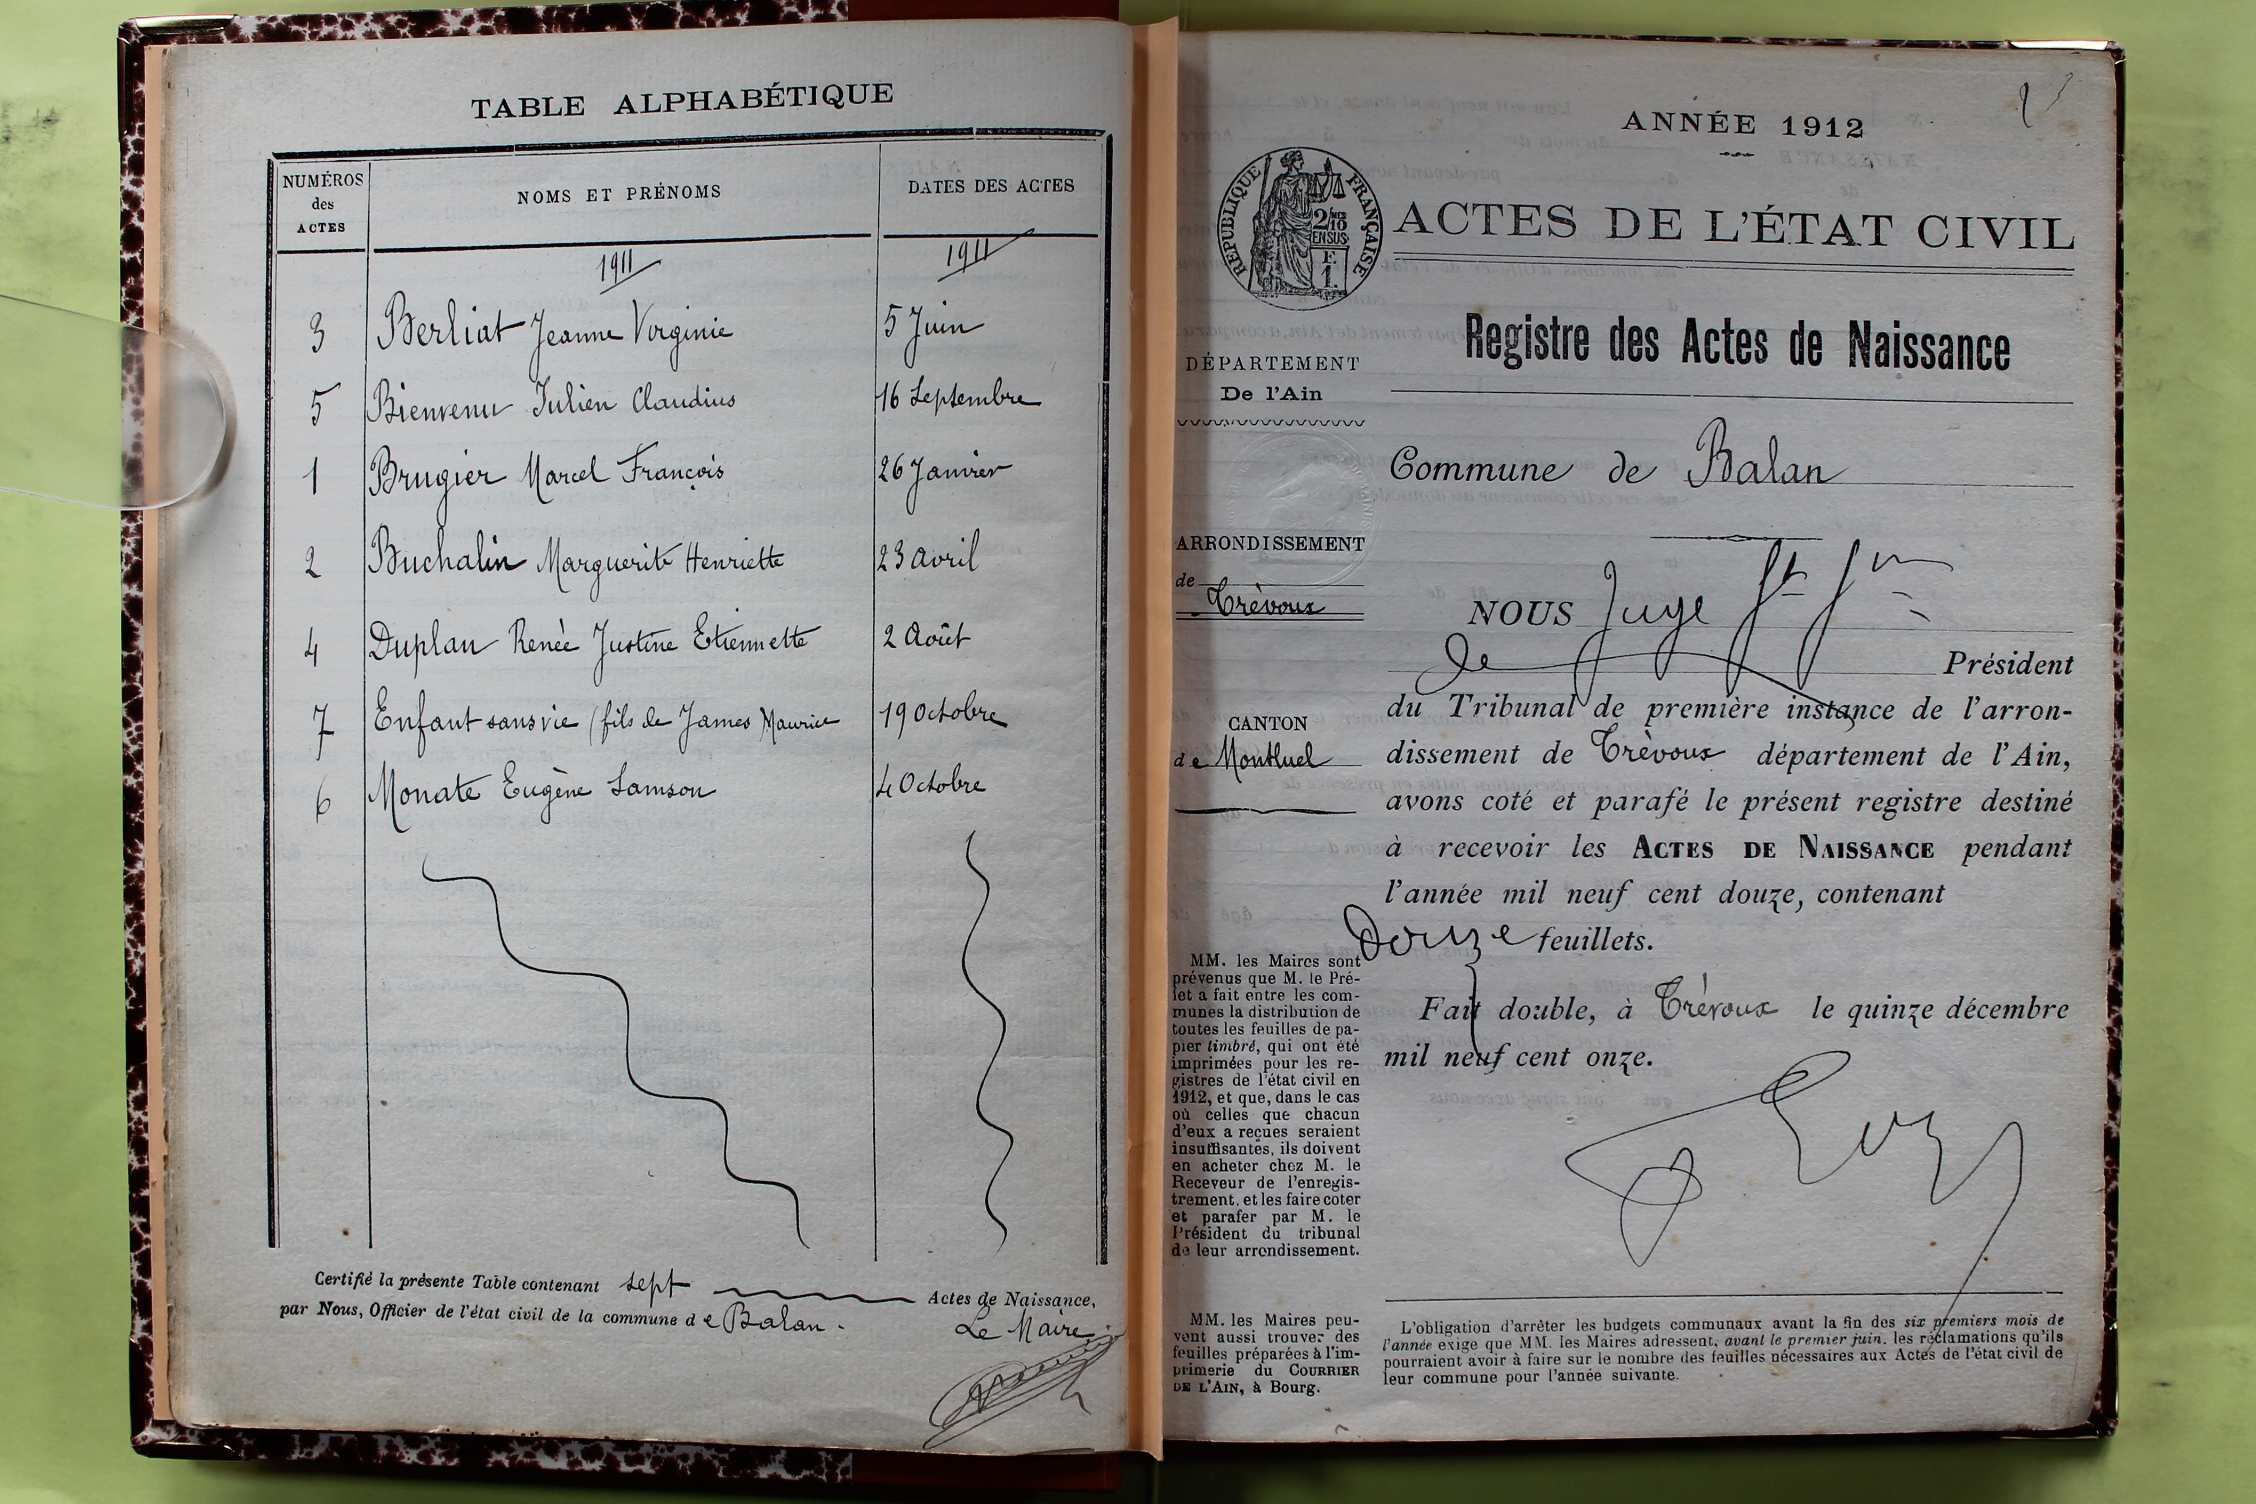 TABLE ALPHABÉTIQUE
NUMÉROS des ACTES
NOMS ET PRÉNOMS
DATES DES ACTES
1911 1911
3 Berliat Jeanne Virginie 5 Juin
5 Bienvenu Julien Claudius 16 Septembre
1 Brugier Marcel François 26 Janvier
2 Buchalin Marguerite Henriette 23 avril
4 Duplan Renée Justine Etiennette 2 Août
7 Enfant sans vie (fils de James Maurice 19 octobre
6 Monate Eugène Samson 4 Octobre
Certifié la présente Table contenant sept Actes de Naissance,
par Nous, Officier de l'état civil de la commune de Balan.
Le Maire
ANNÉE 1912
RÉPUBLIQUE FRANÇAISE
2/10 EN SUS
F. 1.
ACTES DE L'ÉTAT CIVIL
Registre des Actes de Naissance
DÉPARTEMENT
De l'Ain
Commune de Balan
ARRONDISSEMENT
de
Trévoux
CANTON
de Montluel
NOUS Juge
de Président
du Tribunal de première instance de l'arron-
dissement de Trévoux département de l'Ain,
avons coté et parafé le présent registre destiné
à recevoir les ACTES DE NAISSANCE pendant
l'année mil neuf cent douze, contenant
Douze feuillets.
Fait double, à Trévoux le quinze décembre
mil neuf cent onze.
MM. les Maires sont
prévenus que M. le Pré-
fet a fait entre les com-
munes la distribution de
toutes les feuilles de pa-
pier timbré, qui ont été
imprimées pour les re-
gistres de l'état civil en
1912, et que, dans le cas
où celles que chacun
d'eux a reçues seraient
insuffisantes, ils doivent
en acheter chez M. le
Receveur de l'enregis-
trement, et les faire coter
et parafer par M. le
Président du tribunal
de leur arrondissement.
MM. les Maires peu-
vent aussi trouver des
feuilles préparées à l'im-
primerie du COURRIER
DE L'AIN, à Bourg.
L'obligation d'arrêter les budgets communaux avant la fin des six premiers mois de
l'année exige que MM. les Maires adressent, avant le premier juin, les réclamations qu'ils
pourraient avoir à faire sur le nombre des feuilles nécessaires aux Actes de l'état civil de
leur commune pour l'année suivante.